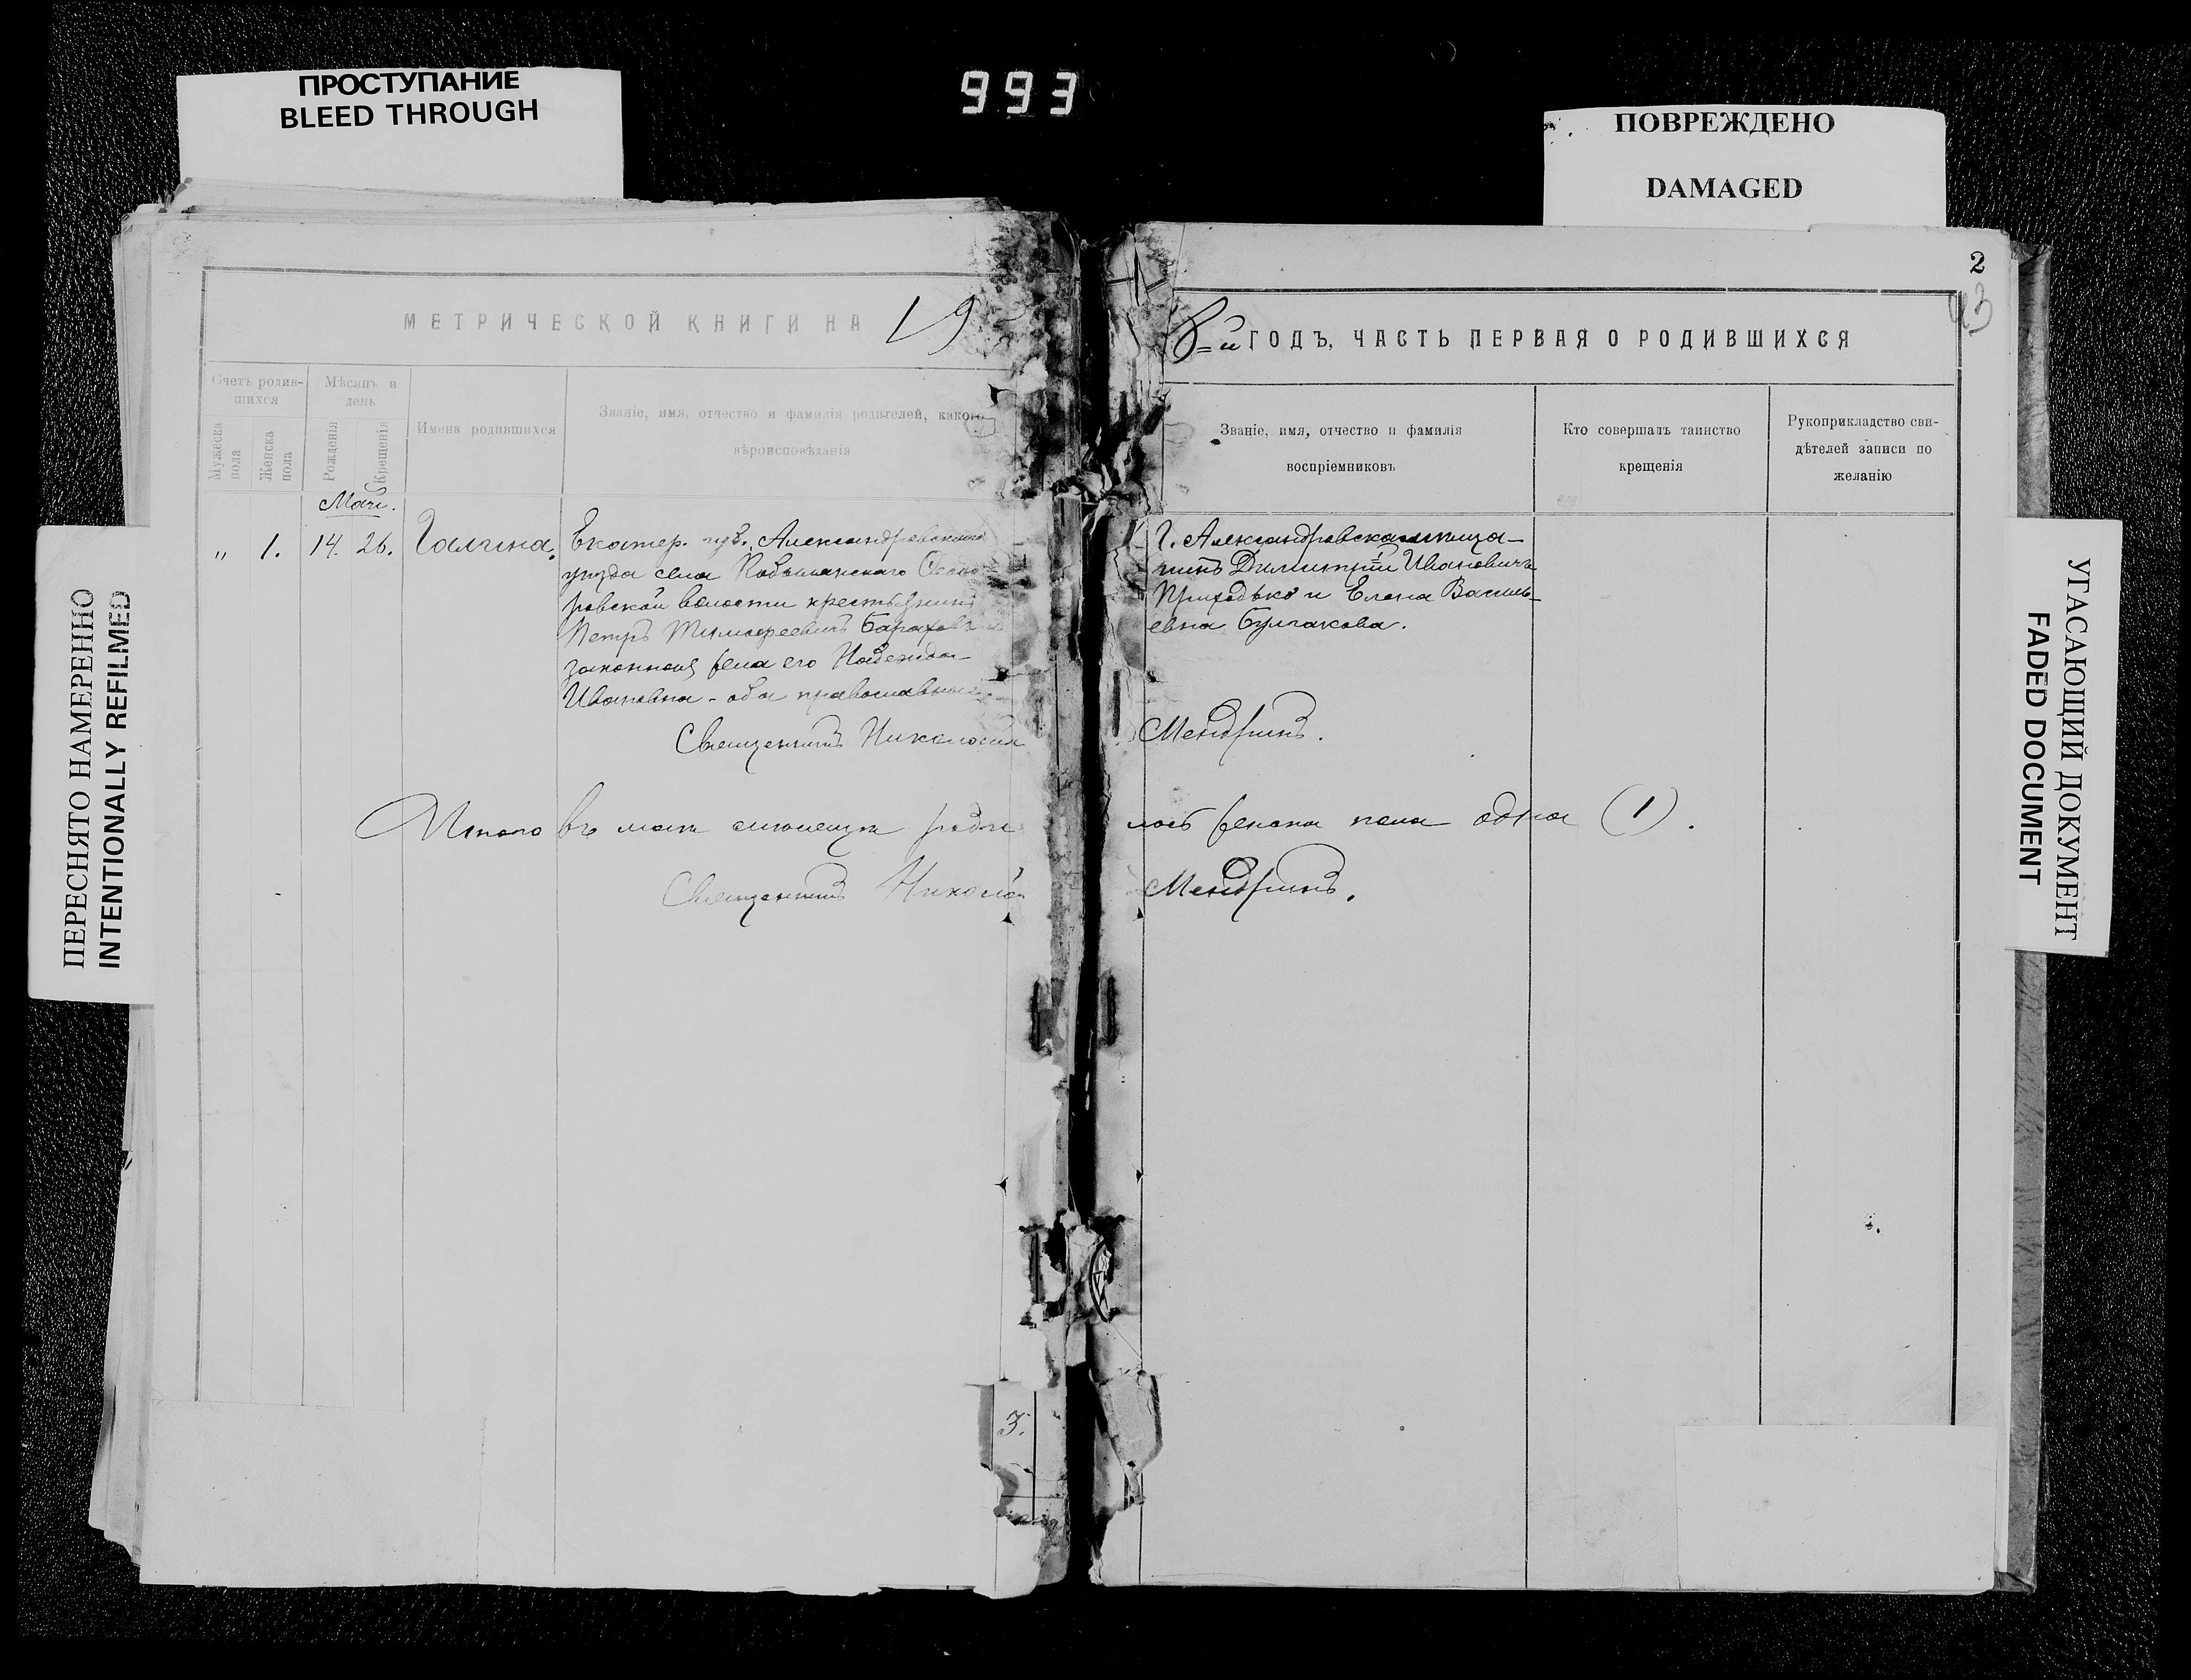 ПРОСТУПАНИЕ
BLEED THROUGH
993
ПОВРЕЖДЕНО
DAMAGED
ПЕРЕСНЯТО НАМЕРЕННО
INTENTIONALLY REFILMED
УГАСАЮЩИЙ ДОКУМЕНТ
FADED DOCUMENT
МЕТРИЧЕСКОЙ КНИГИ НА 19
Счетъ родив-
шихся
Мѣсяцъ и
день
Мужеска
пола
Женска
пола
Рожденія
Крещенія
Имена родившихся
Званіе, имя, отчество и фамилія родителей, какого
вѣроисповѣданія
Май.
" 1. 14. 26. Галина.
Екатер. губ. Александровскаго
уѣзда села
волости крестьянинъ
Петръ Тимофеевичъ
законная жена его Надежда
Ивановна - оба православные
Священникъ Николай
Итого въ маѣ мѣсяцѣ роди
Священникъ Николай
3.
2
43
ГОДЪ, ЧАСТЬ ПЕРВАЯ О РОДИВШИХСЯ
Званіе, имя, отчество и фамилія
воспріемниковъ
Кто совершалъ таинство
крещенія
Рукоприкладство сви-
дѣтелей записи по
желанію
Г. Александровска мѣща-
нинъ Димитрій Ивановичъ
Приходько и Елена Василь-
евна Булгакова.
Мендринъ.
лось женска пола одна (1).
Мендринъ.